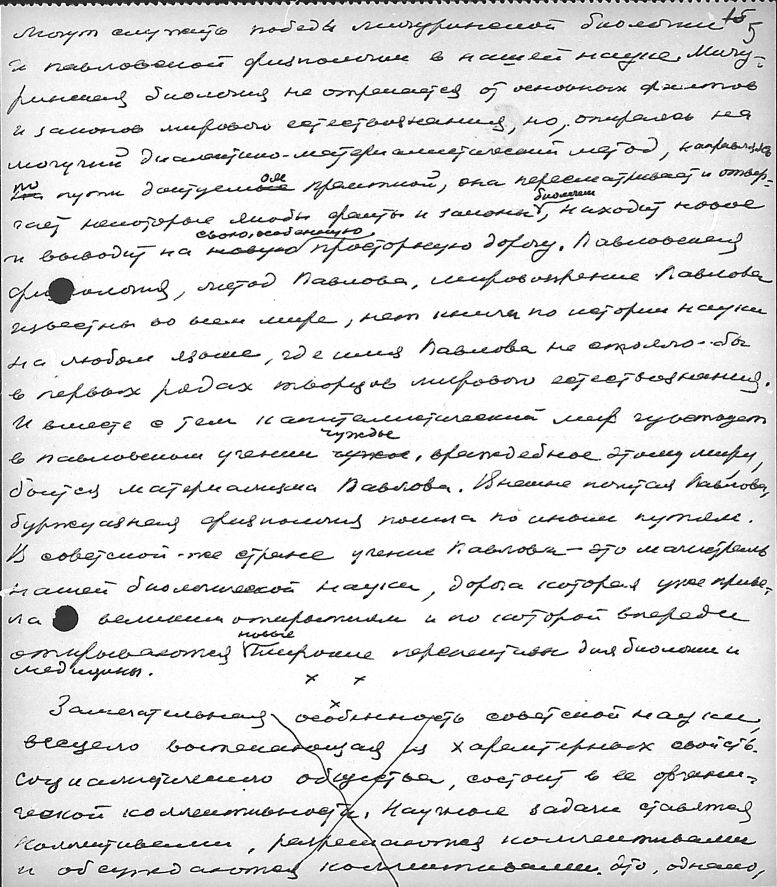 15
5
могут служить победы мичуринской биологии
и павловской физиологии в нашей науке. Мичу-
ринская биология не отрекается от основных фактов
и законов мирового естествознания, но, опираясь на
могучий диалектико-материалистический метод,
по пути доступном практикой, она пересматривает и отвер-
гает некоторые якобы факты и законы биологии, находит новое
и выводит на новую своюособенную просторную дорогу. Павловская
физиология, метод Павлова, мировоззрение Павлова
известны во всем мире, нет книги по истории науки
на любом языке, где имя Павлова не стояло-бы
в первых рядах творцов мирового естествознания.
И вместе с тем капиталистический мир чувствует
в павловском учении чужое чуждое, враждебное этому миру,
боится материализма Павлова. Внешне почитая Павлова,
буржуазная физиология пошла по иным путям.
В советской-же стране учение Павлова – это магистраль
нашей биологической науки, дорога которая уже приве-
ла великим открытиям и по которой впереди
открываются новые широкие перспективы для биологии и
медицины.
х х
х
Замечательная особенность советской науки,
всецело вытекающая из характерных свойств
социалистического общества, состоит в ее органи-
ческой коллективности. Научные задачи ставятся
коллективами, разрешаются коллективами
и обсуждаются коллективами. Это, однако,